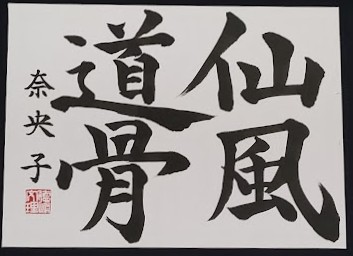 仙風
道骨
奈央子